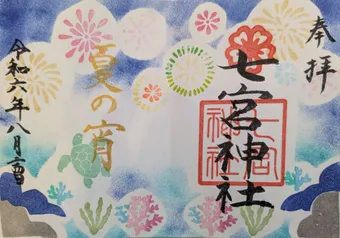 奉拝
七宮神社
七宮神社
夏の宵
令和六年八月